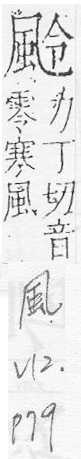 力丁切音
零寒風
風
V12.
P79